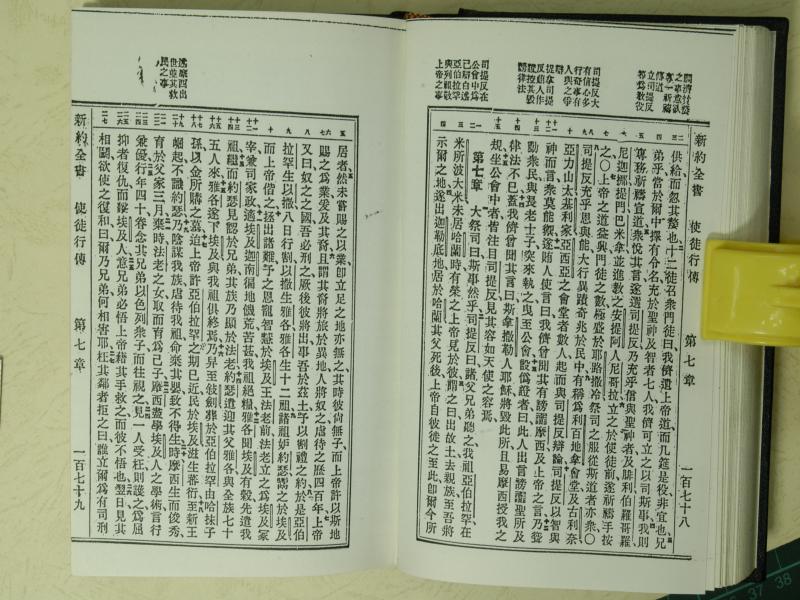 新約全書 使徒行傳 第七章 一百七十八
立司提反
等爲執役
司提反大
有信心多
行奇事有
人與之爭
辯
提拿司提
反賄人作
證控其毀
謗律法
司提反在
公會中爲
己辯白述
亞伯拉罕
與列祖敬
上帝之事
供給而忽其嫠也十二徒召衆門徒曰我儕遺上帝道而几筵是役非宜也兄
弟乎當於爾中擇有令名充於聖神及智者七人我儕可立之以司斯事我則
專務祈禱宣道衆悅其言遂選司提反乃充乎信與聖神者及腓利伯羅哥羅
尼迦挪提門巴米拿並進教之安提阿人尼哥拉立之於使徒前遂祈禱手按
之上帝之道益興門徒之數極盛於耶路撒冷祭司之服從斯道者亦衆〇
司提反充乎恩與能大行異蹟奇兆於民中有稱爲利百地拿會堂及古利奈
亞力山太基利家亞西亞之會堂者數人起而與司提反辯論司提反以智與
神而言衆莫能禦遂賄人使言曰我儕曾聞其有謗讟摩西及上帝之言乃聳
動衆民與長老士子突來執之曳至公會設僞證者曰此人出言謗讟聖所及
律法不已蓋我儕曾聞其言曰斯拿撒勒人耶穌將毀此所且易摩西授我之
規坐公會中者皆注目司提反見其容如天使之容焉
第七章 大祭司曰斯事然乎司提反曰諸父兄弟聽之我祖亞伯拉罕在
米所波大米未居哈蘭時有榮之上帝見於彼謂之曰出故土去親族至吾將
示爾之地遂出迦勒底地居於哈蘭其父死後上帝自彼徙之至此卽爾今所
述摩西出
世並其救
民之事
居者然未嘗賜之以業卽立足之地亦無之其時彼尚無子而上帝許以斯地
賜之爲業爰及其裔且謂其裔將旅於異地人將奴之虐待之歷四百年上帝
又曰奴之之國吾必刑之厥後彼將出事吾於茲土予以割禮之約於是亞伯
拉罕生以撒八日行割以撒生雅各雅各生十二祖諸祖妒約瑟鬻之於埃及
而上帝偕之拯出諸難予之恩寵智慧於埃及王法老前法老立之爲埃及冢
宰兼司家政適埃及迦南徧地饑荒苦甚我祖絕糧雅各聞埃及有穀先遣我
祖繼而約瑟見認於兄弟其族乃顯於法老約瑟遣迎其父雅各與全族七十
五人來雅各遂下埃及與我祖俱終焉乃舁至示劍葬於亞伯拉罕由哈抹子
孫以金所購之墓迨上帝許亞伯拉罕之期已近民於埃及滋生蕃衍至新王
崛起不識約瑟乃陰謀我族虐待我祖命棄其嬰致不得生時摩西生而俊秀
育於父家三月棄時法老之女取而育爲己子摩西盡學埃及人之學術言行
兼優行年四十眷念其兄弟以色列衆子而往視之見一人受枉則護之爲屈
抑者復仇而擊埃及人意兄弟必悟上帝藉其手救之而彼不悟也翌日見其
相鬭欲使之復和曰爾乃兄弟何相害耶枉其鄰者拒之曰誰立爾爲有司刑
新約全書 使徒行傳 第七章 一百七十九